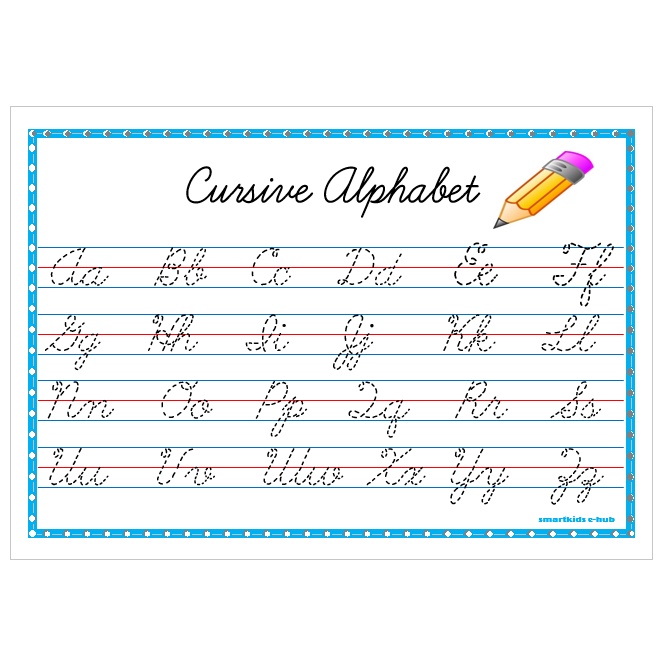 Cursive Alphabet
Aa Bb Cc Dd Ee Ff
Gg Hh Ii Jj Kk Ll
Nn Oo Pp Qq Rr Ss
Uu Vv Ww Xx Yy Zz
smartkids e-hub